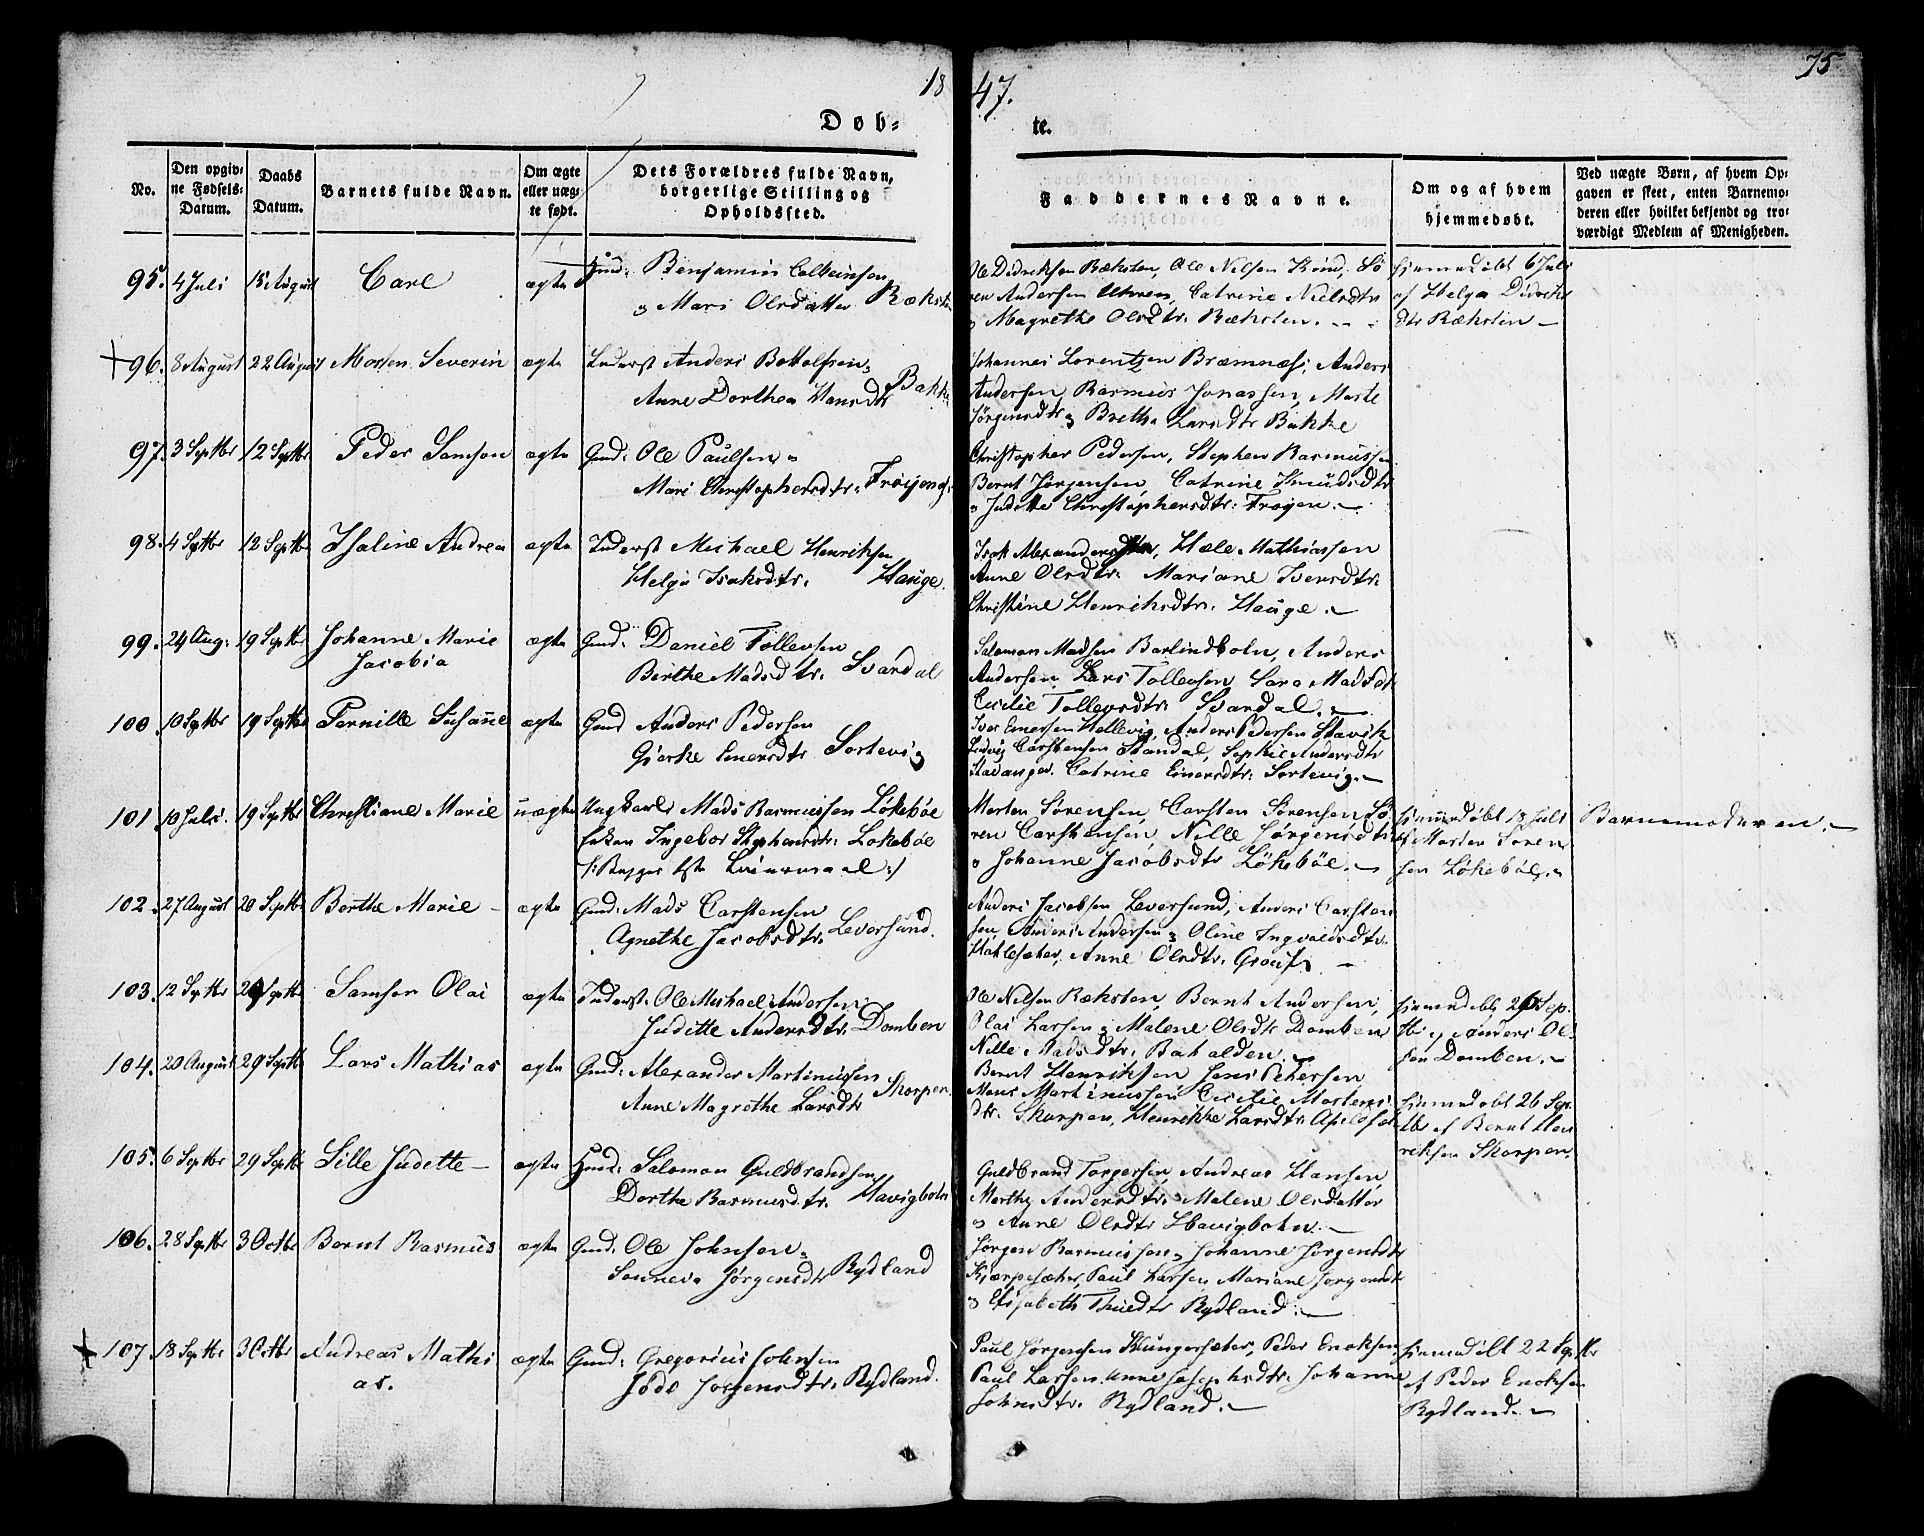 18 47. 75
Døb- te.
No.
Den opgiv-
ne Fødsels-
Datum.
Daabs
Datum.
Barnets fulde Navn.
Om ægte
eller uæg-
te født.
Dets Forældres fulde Navn,
borgerlige Stilling og
Opholdssted.
Faddernes Navne.
Om og af hvem
hjemmedøbt.
Ved uægte Børn, af hvem Op-
gaven er skeet, enten Barnemo-
deren eller hvilket bekjendt og tro-
værdigt Medlem af Menigheden.
95. 4 Juli 15 August Carl ægte Huusm: Benjamin
Mari Olsdatter
Ole Didriksen Ræksten, Ole Nilsen Sø
ren Andersen Catrine Nielsdtr
Magrethe Olsdtr: Ræksten.
hjemmedøbt 6 Juli
af Helga Didriks
dtr Ræksten
96. 8 August 22 August Morten Severin ægte Inderst Anders Bottolfsen
Anne Dorthea Hansdtr Bakke
Johannes Lorentzen Bræmnæs, Anders
Andersen, Rasmus Jonassen, Marte
Jørgensdtr Brethe Larsdtr Bakke
97. 3 Septbr 12 Septbr Peder Samson ægte Gmd: Ole Paulsen
Mari Christophersdtr: Frøyen
Christopher Pedersen, Stephen Rasmussen
Bernt Jørgensen Catrine Knudsdtr
Judithe Christophersdtr: Frøyen.
98. 4 Septbr 12 Septbr Ihaline Andrea ægte Inderst Michael Henriksen
Helga Isaksdtr. Hauge.
Isak Alexandersen, Hæle Mathiassen
Anne Olsdtr: Mariane Iversdtr:
Christine Henriksdtr. Hauge.
99. 24 Aug: 19 Septbr Johanne Marie
Jacobia ægte Gmd: Daniel Tollevsen
Birthe Madsdtr. Svardal
Salomon Madsen Barlindbotn, Anders
Andersen, Lars Tollevsen Sara Madsdtr
Cecilie Tollevsdtr Svardal.
100. 10 Septbr 19 Septbr Pernille Susanne ægte Gmd Anders Pedersen
Gjerke Einersdtr Sortevig
Iver Einersen Hellevig, Anders Pedersen Stavik
Ludvig Carstensen Standal, Sophie Andersdtr
Stavanger. Catrine Einersdtr: Sortevig.
101. 10 Juli. 19 Septbr Christiane Marie uægte Ungkarl Mads Rasmussen Løkebøe
Ingebor Stephensdtr: Løkebøe
Morten Sørensen, Carsten Sørensen, Sø
ren Carstensen, Nille Jørgensdtr
Johanne Jacobsdtr Løkebøe.
hjemmedøbt 18 Juli
af Morten Søren
sen Løkebøe.
Barnemoderen.
102. 27 August 26 Septbr Berthe Marie ægte Gmd: Mads Carstensen
Agnethe Jacobsdtr. Leversund.
Anders Jacobsen Leversund, Anders Carsten
sen, Anders Andersen Oline Ingvaldsdtr.
Hatlesæter, Anne Olsdtr.
103. 12 Septbr Septbr Samson Olai ægte Inderst: Ole Michael Andersen
Judithe Andersdtr. Domben
Ole Nilsen Ræksten, Bernt Andersen,
Olai Larsen Malene Olsdtr Domben
Nille Madsdtr: Bakalden.
hjemmedøbt Sep-
tbr af Anders Ol-
sen Domben.
104. 20 August 29 Septbr Lars Mathias ægte Gmd: Alexander Martinussen
Anne Magrethe Larsdtr Skorpen
Bernt Henriksen Jens Petersen
Mons Martinussen Cecilie Mortens
dtr. Skorpen, Henrikke Larsdtr:
hjemmedøbt 26 Sep
tbr af Bernt Hen
riksen Skorpen.
105. 6 Septbr 29 Septbr Lille Judette ægte Huusm: Salomon Guldbrandsen
Dorthe Rasmusdtr. Havigbotn
Guldbrand Torgersen, Andreas Hansen,
Marthe Andersdtr. Malene Olsdatter
Anne Olsdtr Havigbotn.
106. 28 Septbr 3 Octbr Bernt Rasmus ægte Gmd: Ole Johnsen
Sønneva Jørgensdtr Rydland
Jørgen Rasmussen Johanne Jørgensdtr
Paul Larsen Mariane Jørgensdtr
Elisabeth Rydland.
107. 18 Septbr 3 Octbr Andreas Mathi
as. ægte Gmd: Gregorius Johnsen
Jørgensdtr. Rydland.
Paul Jørgensen Klungersæter, Peder Ericksen
Paul Larsen Anne Josephsdtr: Johanne
Johnsdtr. Rydland.
hjemmedøbt 22 Septbr
af Peder Ericksen
Rydland.